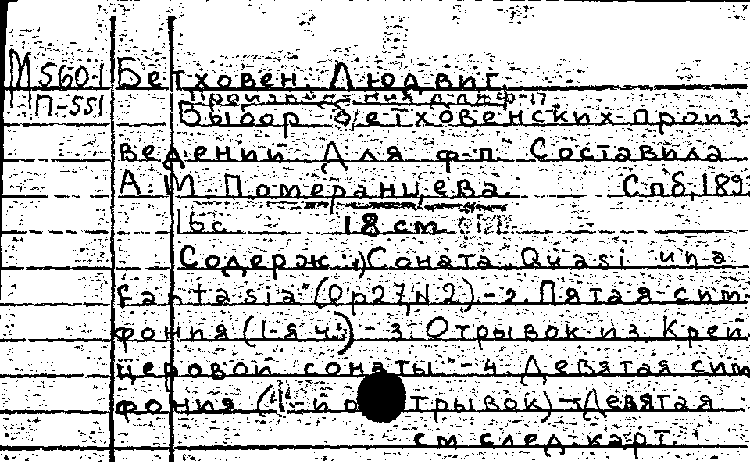 М 560-1 Бетховен, Людвиг
П-551 Произведения для ф-п.
Выбор бетховенских произ-
ведений Для ф-п. Составила
А. М. Померанцева. Спб, 189
16 с. 18 см
Содерж: 1) Соната "Quasi una
fantasia" (Op 27, N 2) - 2. Пятая сим-
фония (1-я ч.) - 3. Отрывок из "Крей-
церовой сонаты" - 4. Девятая сим
фония ( отрывок) - Девятая
см. след. карт.